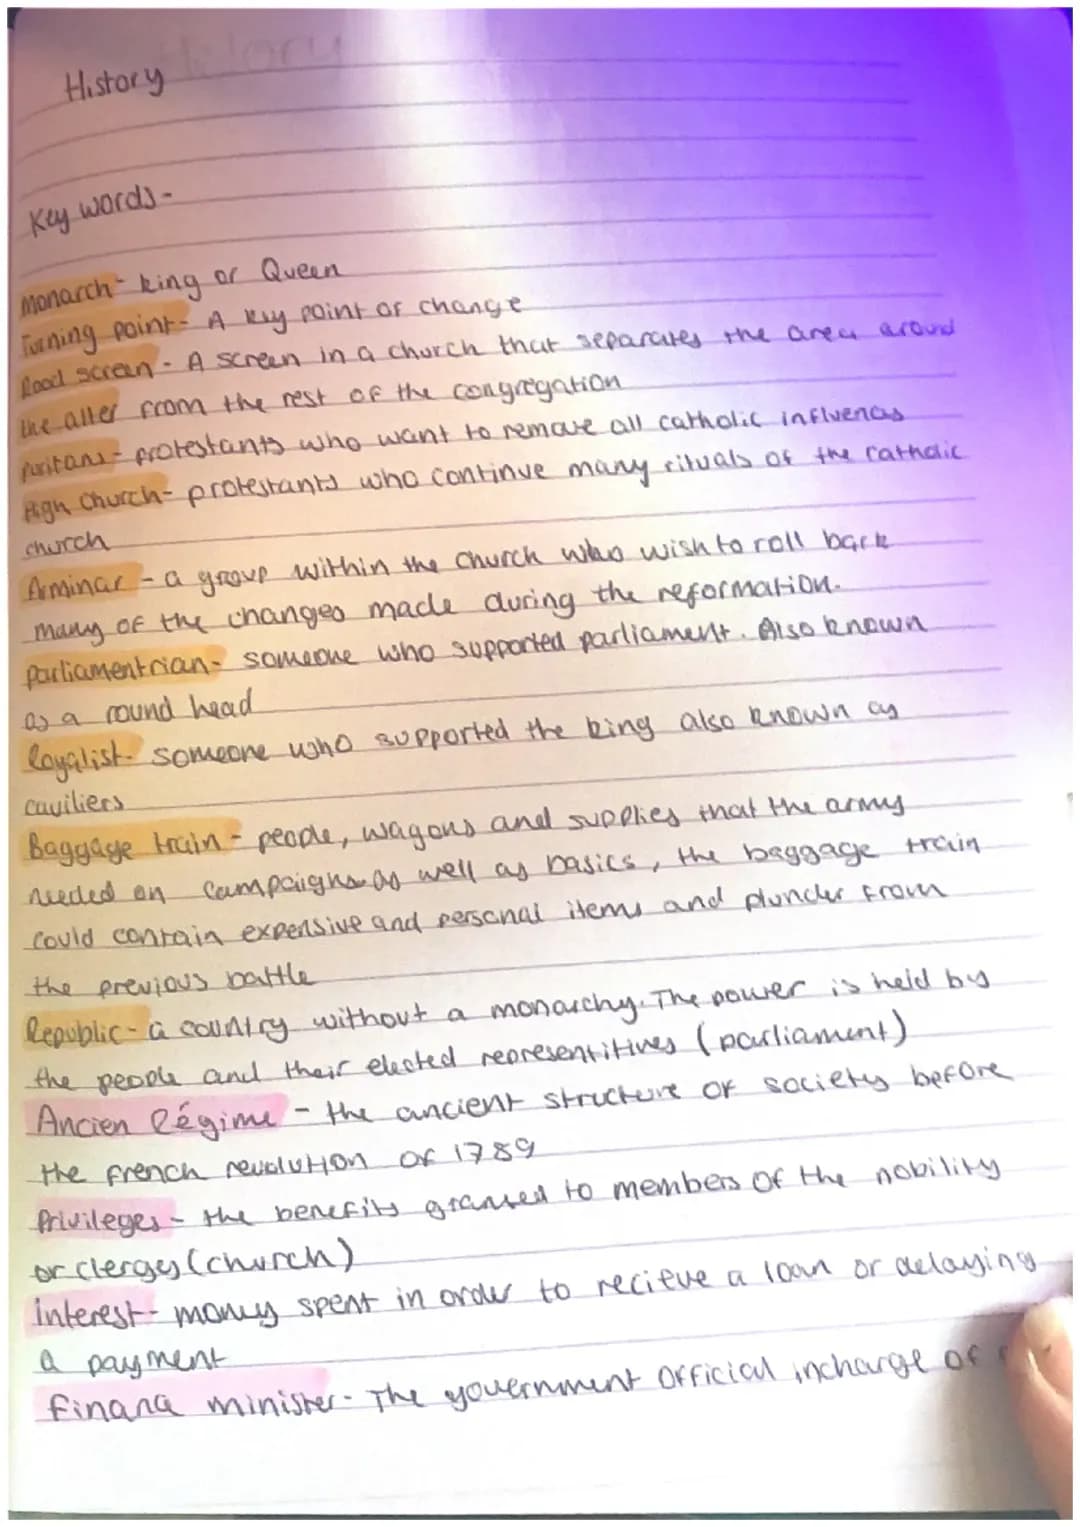 History
Key words -
Monarch - king or Queen
Turning point - A key point of change
Rood screen - A screen in a church that separates the area around
the alter from the rest of the congregation
puritans - protestants who want to remove all catholic influences
High Church - protestants who continue many rituals of the catholic
church
Arminar - a group within the church who wish to roll back
many of the changes made during the reformation.
parliamentrian - someone who supported parliament. Also known
as a round head
Royalist - someone who supported the king also known as
caviliers
Baggage train - people, wagons and supplies that the army
needed on campaigns as well as basics, the baggage train
could contain expensive and personal items and plunder from
the previous battle
Republic - a country without a monarchy. The power is held by
the people and their elected representitives (parliament)
Ancien Régime - the ancient structure of society before
the french revolution of 1789
Privileges - the benefits granted to members of the nobility
or clergy (church)
interest - money spent in order to recieve a loan or delaying
a payment
finance minister - The government official incharge of